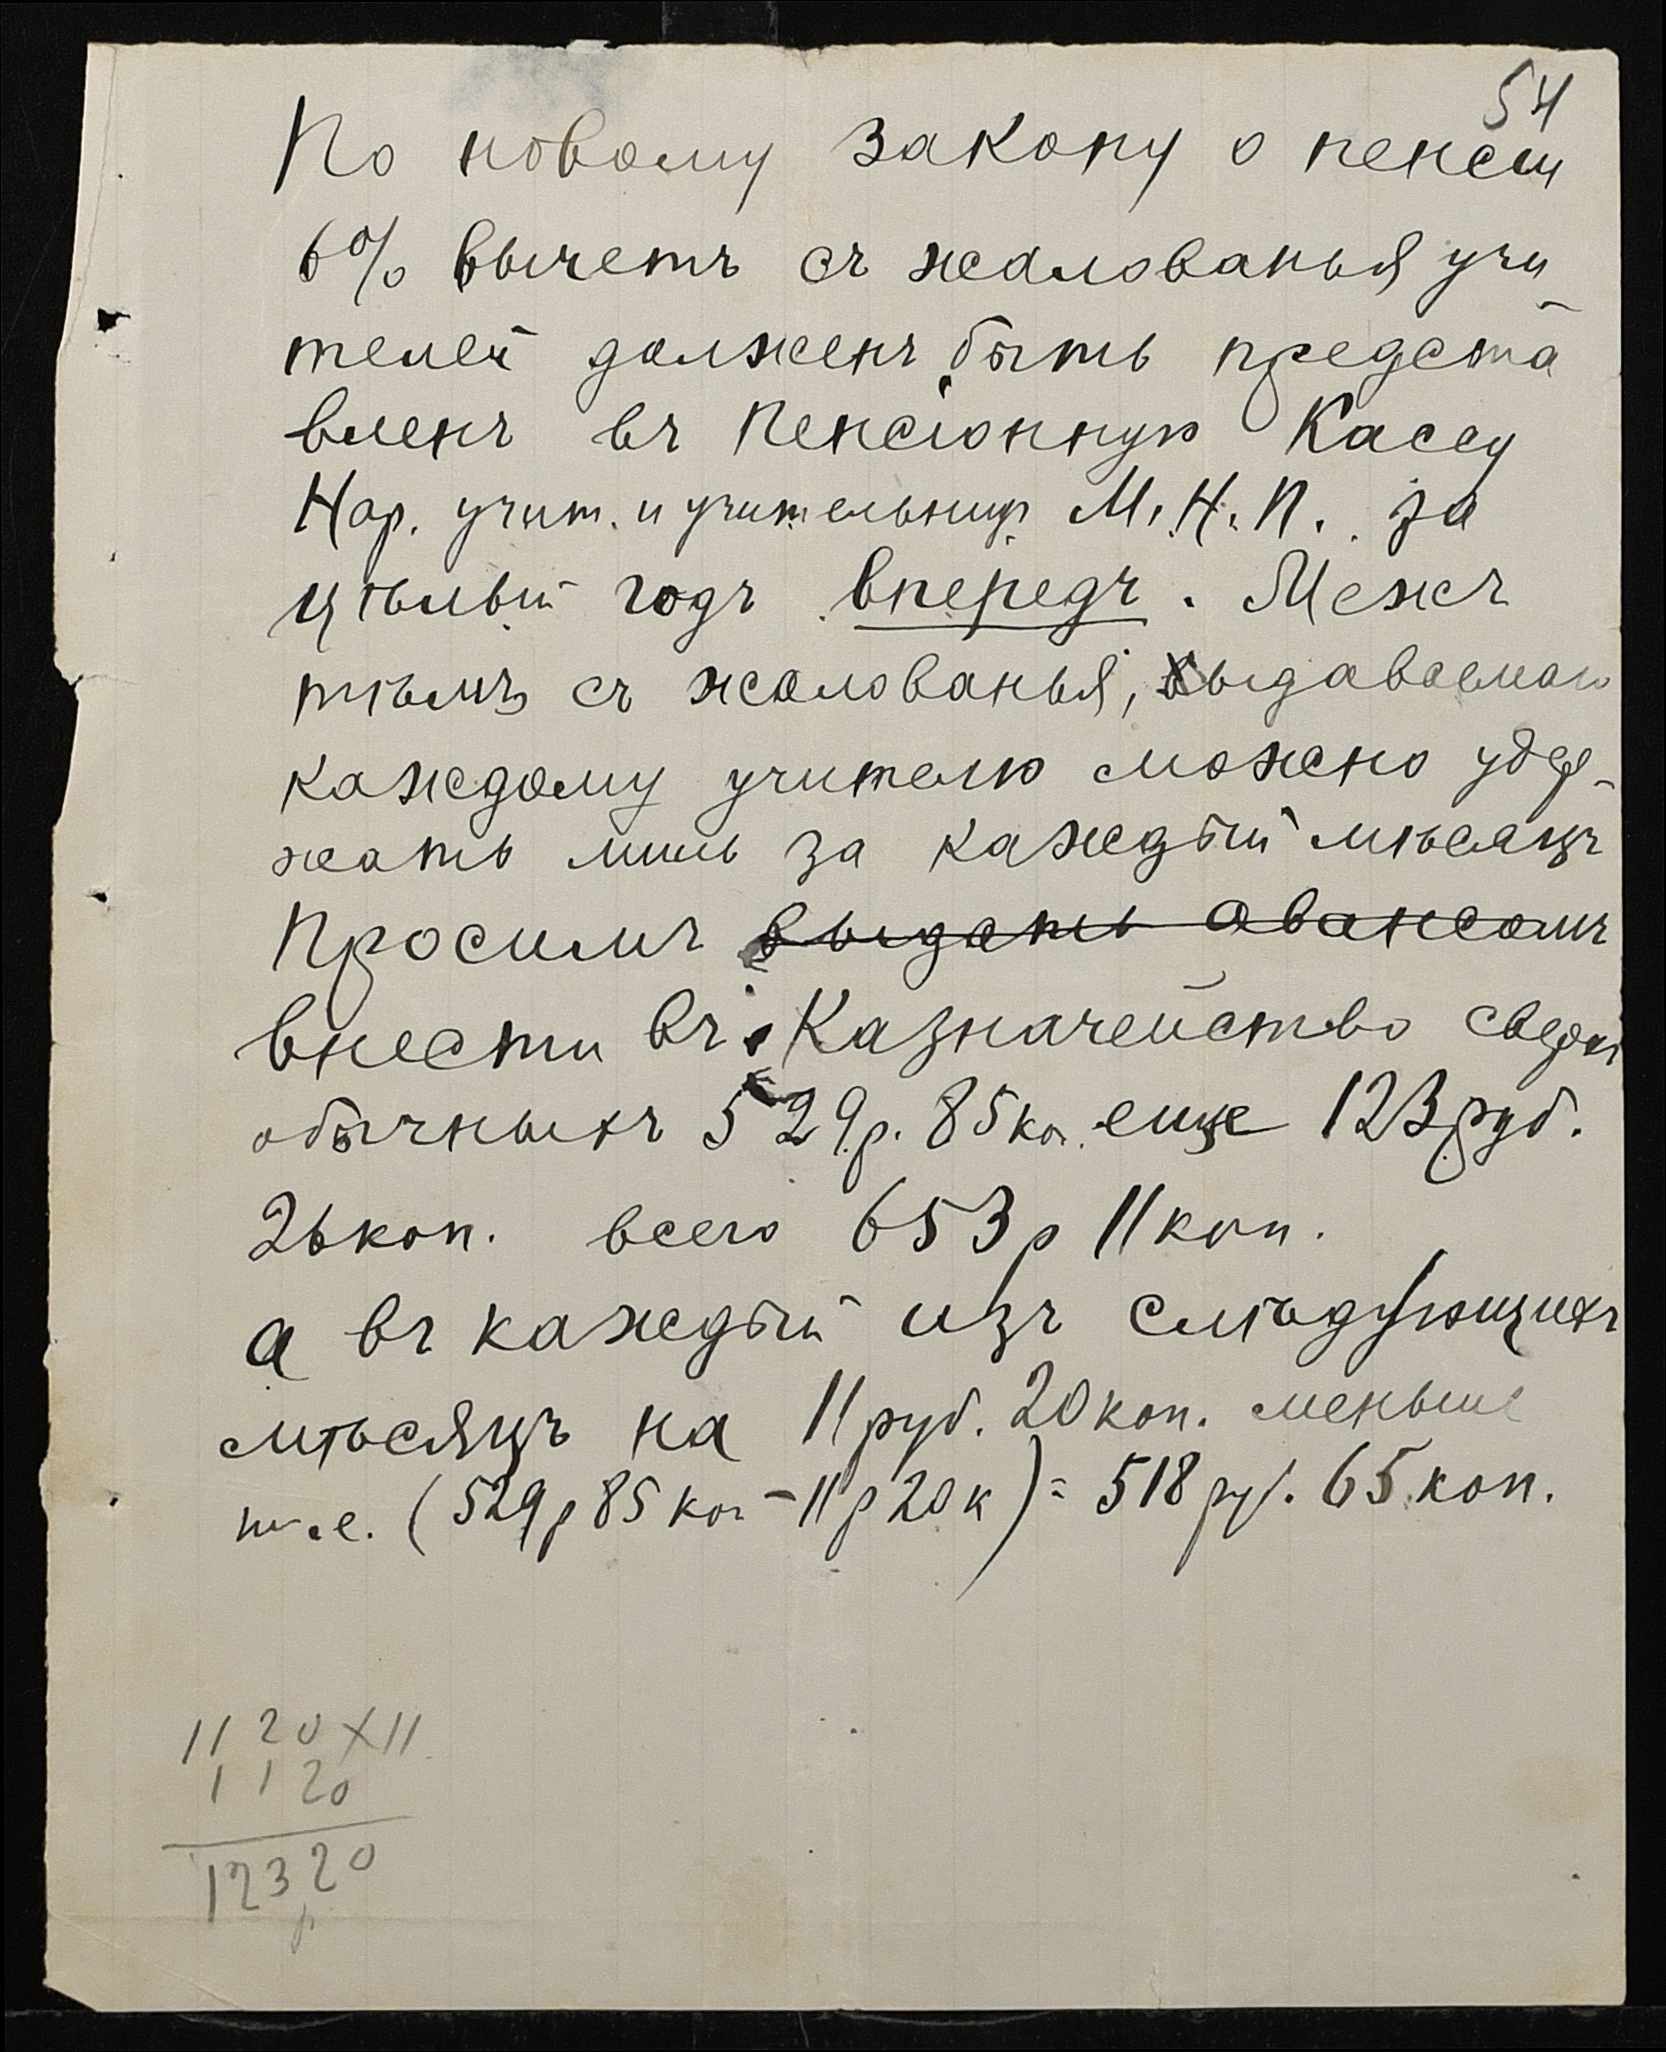 54
По новому закону о пенсіи
6% вычетъ съ жалованья учи
телей долженъ быть предста
вленъ въ Пенсіонную Кассу
Нар. учит. и учительницъ М. Н. П. за
цѣлый годъ впередъ. Межъ
тѣмъ съ жалованья, выдаваемаго
каждому учителю можно удер-
жать лишь за каждый мѣсяцъ
Просимъ выдать авансомъ
внести въ Казначейство сверхъ
обычныхъ 529р. 85коп. еще 123руб.
26коп. всего 653р 11коп.
а въ каждый изъ слѣдующихъ
мѣсяцъ на 11руб. 20коп. меньше
т.е. (529р 85коп - 11р 20к) = 518руб. 65коп.
1120X11
1120
12320
р